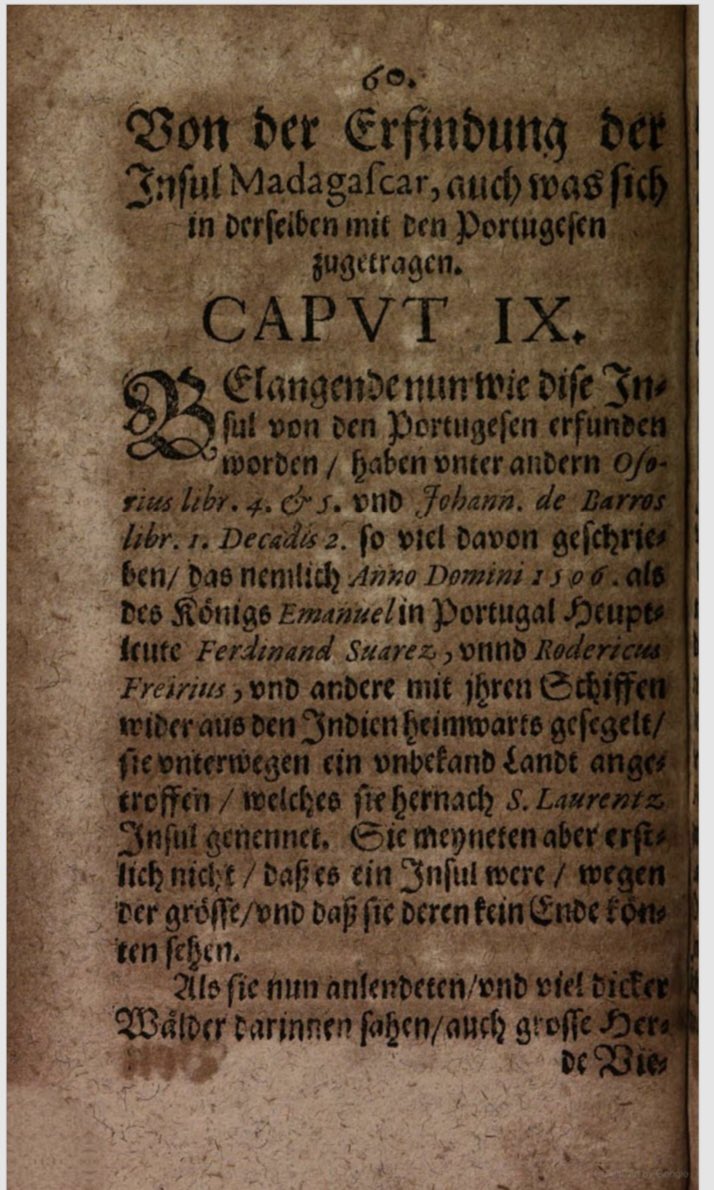 60.
Von der Erfindung der
Insul Madagaſcar, auch was ſich
in derſelben mit den Portugeſen
zugetragen.
CAPVT IX.
BElangende nun wie diſe In⸗
ſul von den Portugeſen erfunden
worden / haben vnter andern Oſo-
rius libr. 4. & 5. vnd Johann. de Barros
libr. 1. Decadis 2. ſo viel davon geſchrie⸗
ben/ das nemlich Anno Domini 1506. als
des Königs Emanuel in Portugal Heupt⸗
leute Ferdinand Suarez, vnnd Rodericus
Freirius, vnd andere mit jhren Schiffen
wider aus den Indien heimwarts geſegelt/
ſie vnterwegen ein vnbekand Landt ange⸗
troffen / welches ſie hernach S. Laurentz
Inſul genennet. Sie meyneten aber erſt⸗
lich nicht / daß es ein Inſul were / wegen
der gröſſe/vnd daß ſie deren kein Ende kön⸗
ten ſehen.
Als ſie nun anlendeten/vnd viel dicker
Wälder darinnen ſahen/auch groſſe Her⸗
de Vie⸗